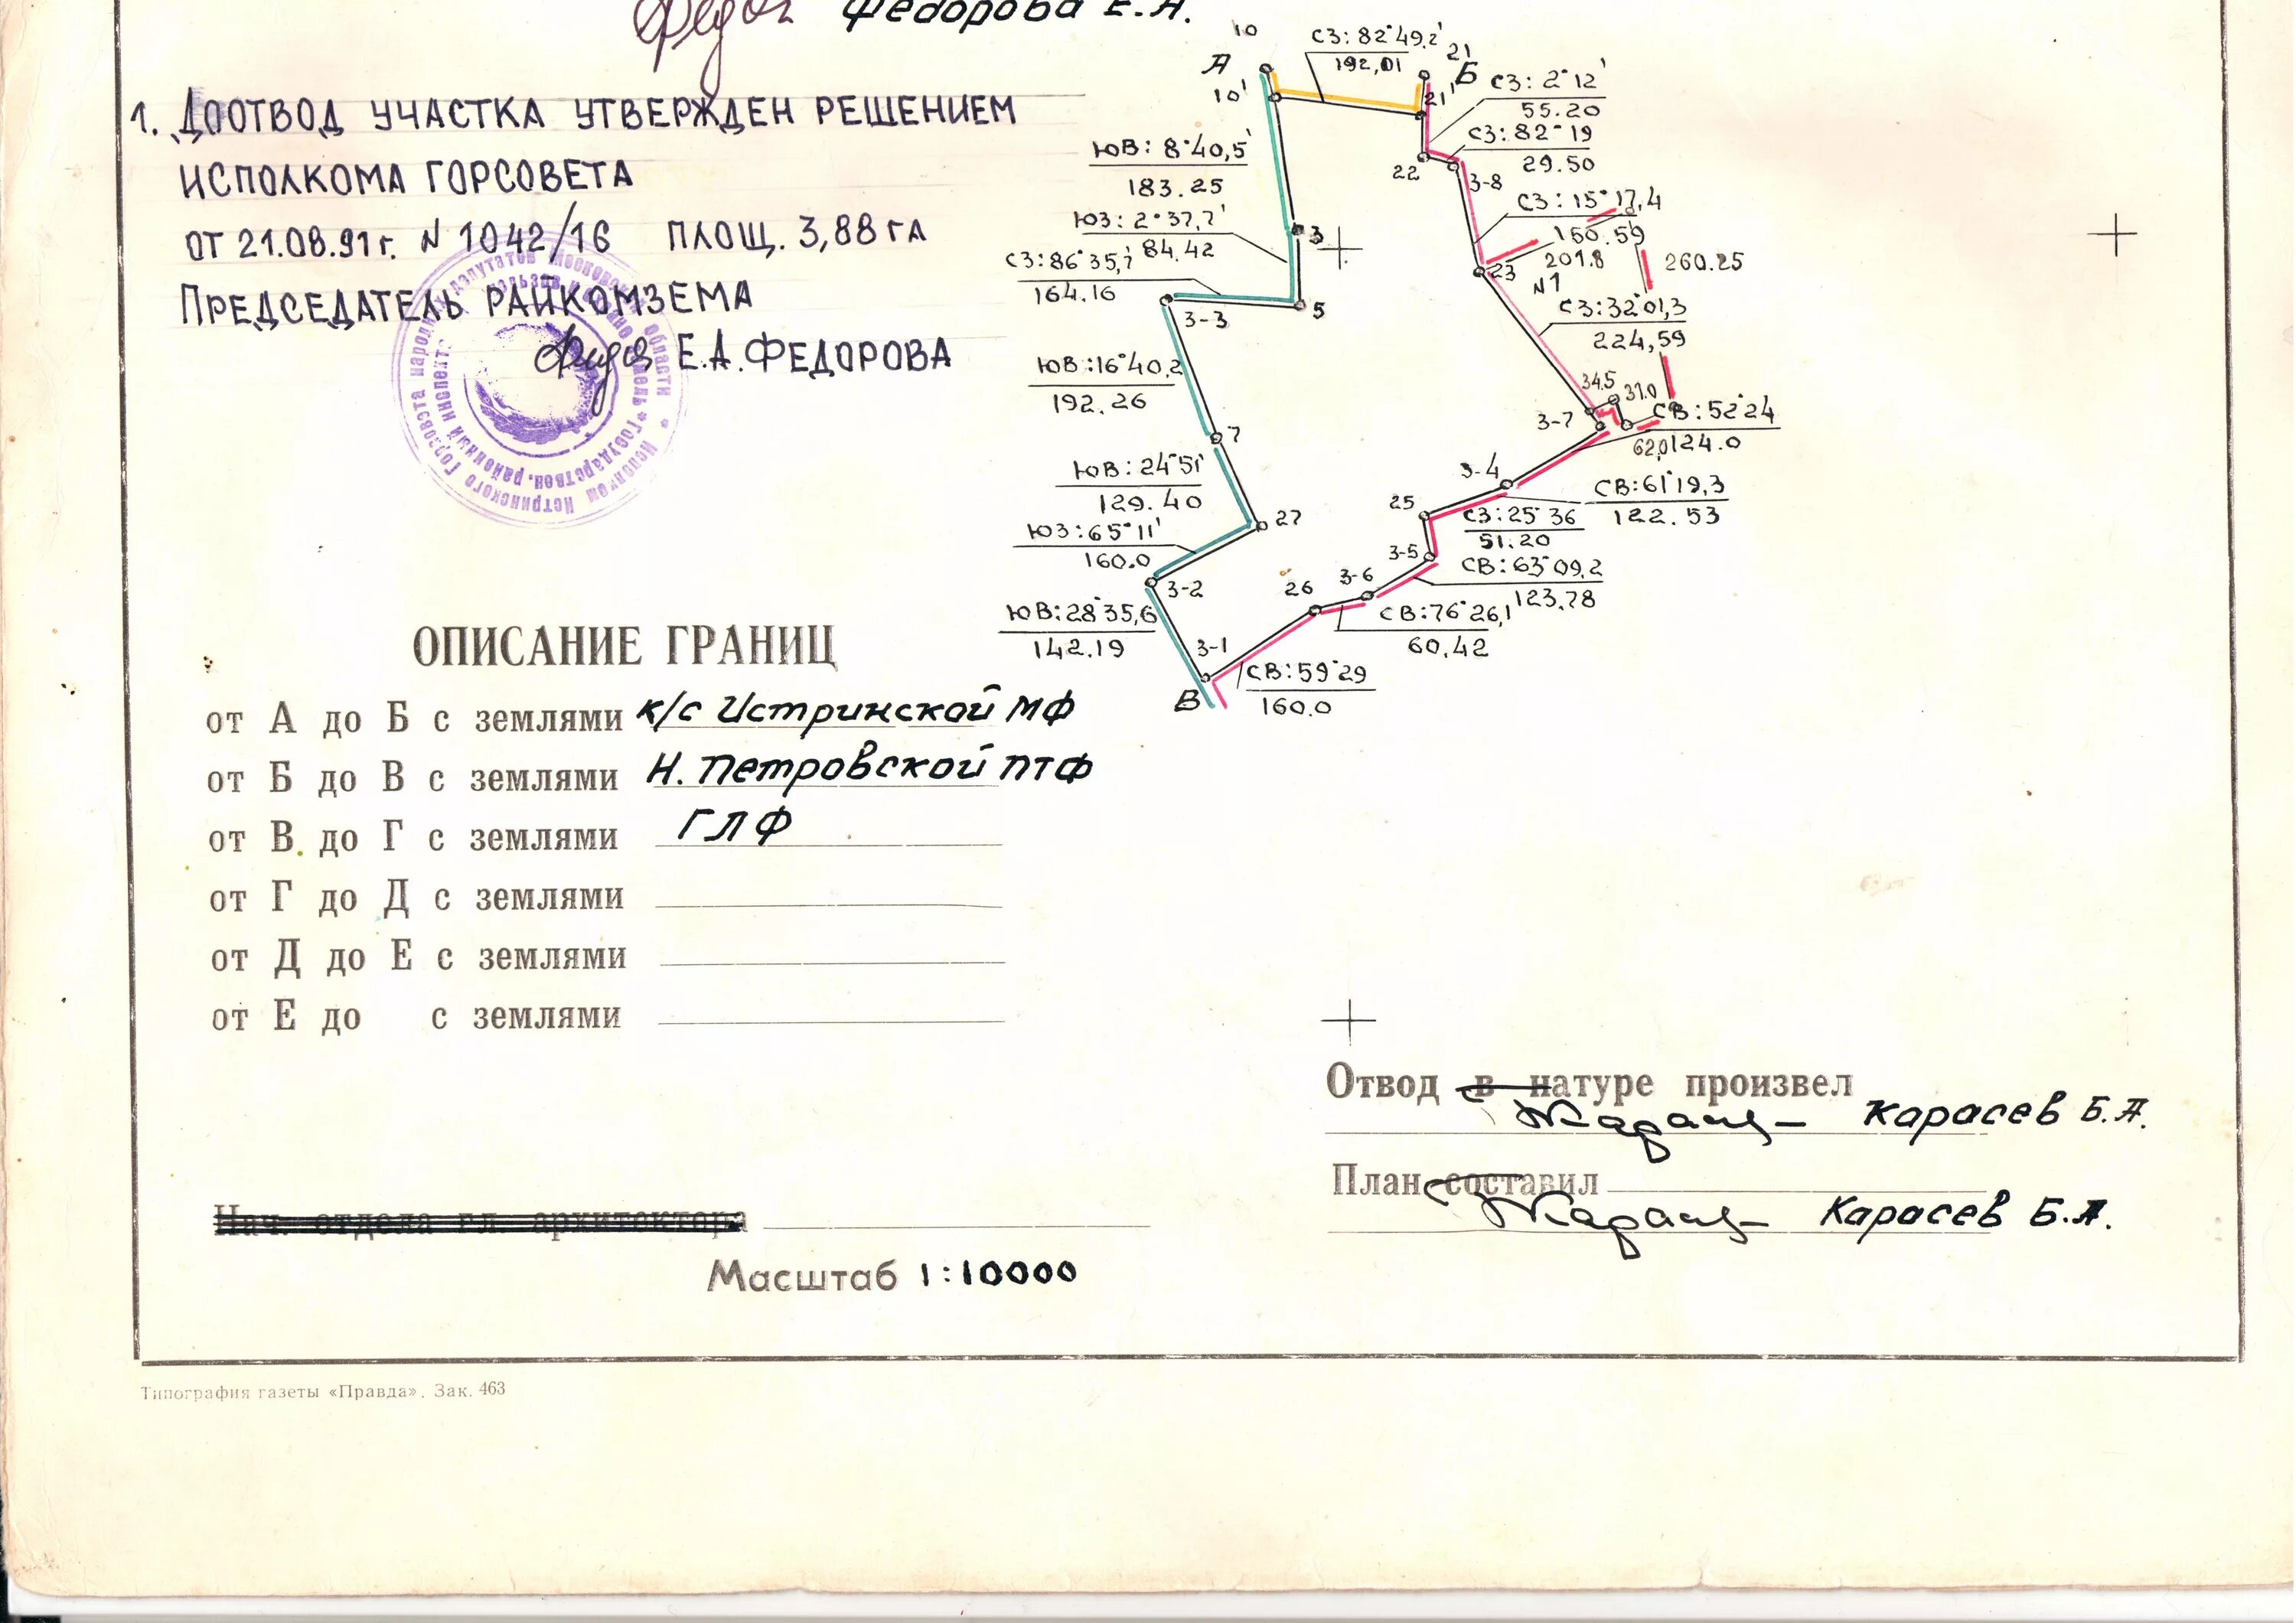 Федорова Е.А.
1. ДООТВОД УЧАСТКА УТВЕРЖДЕН РЕШЕНИЕМ
ИСПОЛКОМА ГОРСОВЕТА
ОТ 21.08.91г. N 1042/16 ПЛОЩ. 3,88 ГА
ПРЕДСЕДАТЕЛЬ РАЙКОМЗЕМА
Е.А.ФЕДОРОВА
ОПИСАНИЕ ГРАНИЦ
от А до Б с землями к/с Истринской МФ
от Б до В с землями Н. Петровской ПТФ
от В до Г с землями ГЛФ
от Г до Д с землями
от Д до Е с землями
от Е до с землями
Нач. отдела гл. архитектора
Масштаб 1:10000
10
А
10'
СЗ: 82°49,2'
192,01
21
Б
21'
СЗ: 2°12'
55.20
СЗ: 82°19
29.50
22
3-8
СЗ: 15°17,4
150.59
201.8
N1
23
260.25
СЗ:32°01,3
224,59
34.5
31.0
3-7
СВ:52°24
62,0
124.0
3-4
СВ:61°19,3
122.53
25
СЗ:25°36
51.20
3-5
СВ:63°09,2
123,78
3-6
26
СВ:76°26,1
60.42
3-1
СВ:59°29
160.0
В
ЮВ: 8°40,5'
183.25
3
ЮЗ: 2°37,7'
84.42
5
СЗ:86°35,7
164.16
3-3
ЮВ:16°40,2
192.26
7
ЮВ:24°51'
129.40
27
ЮЗ:65°11'
160.0
3-2
ЮВ:28°35,6
142.19
Отвод в натуре произвел
Карасев Б.А.
План составил
Карасев Б.А.
Типография газеты «Правда». Зак. 463